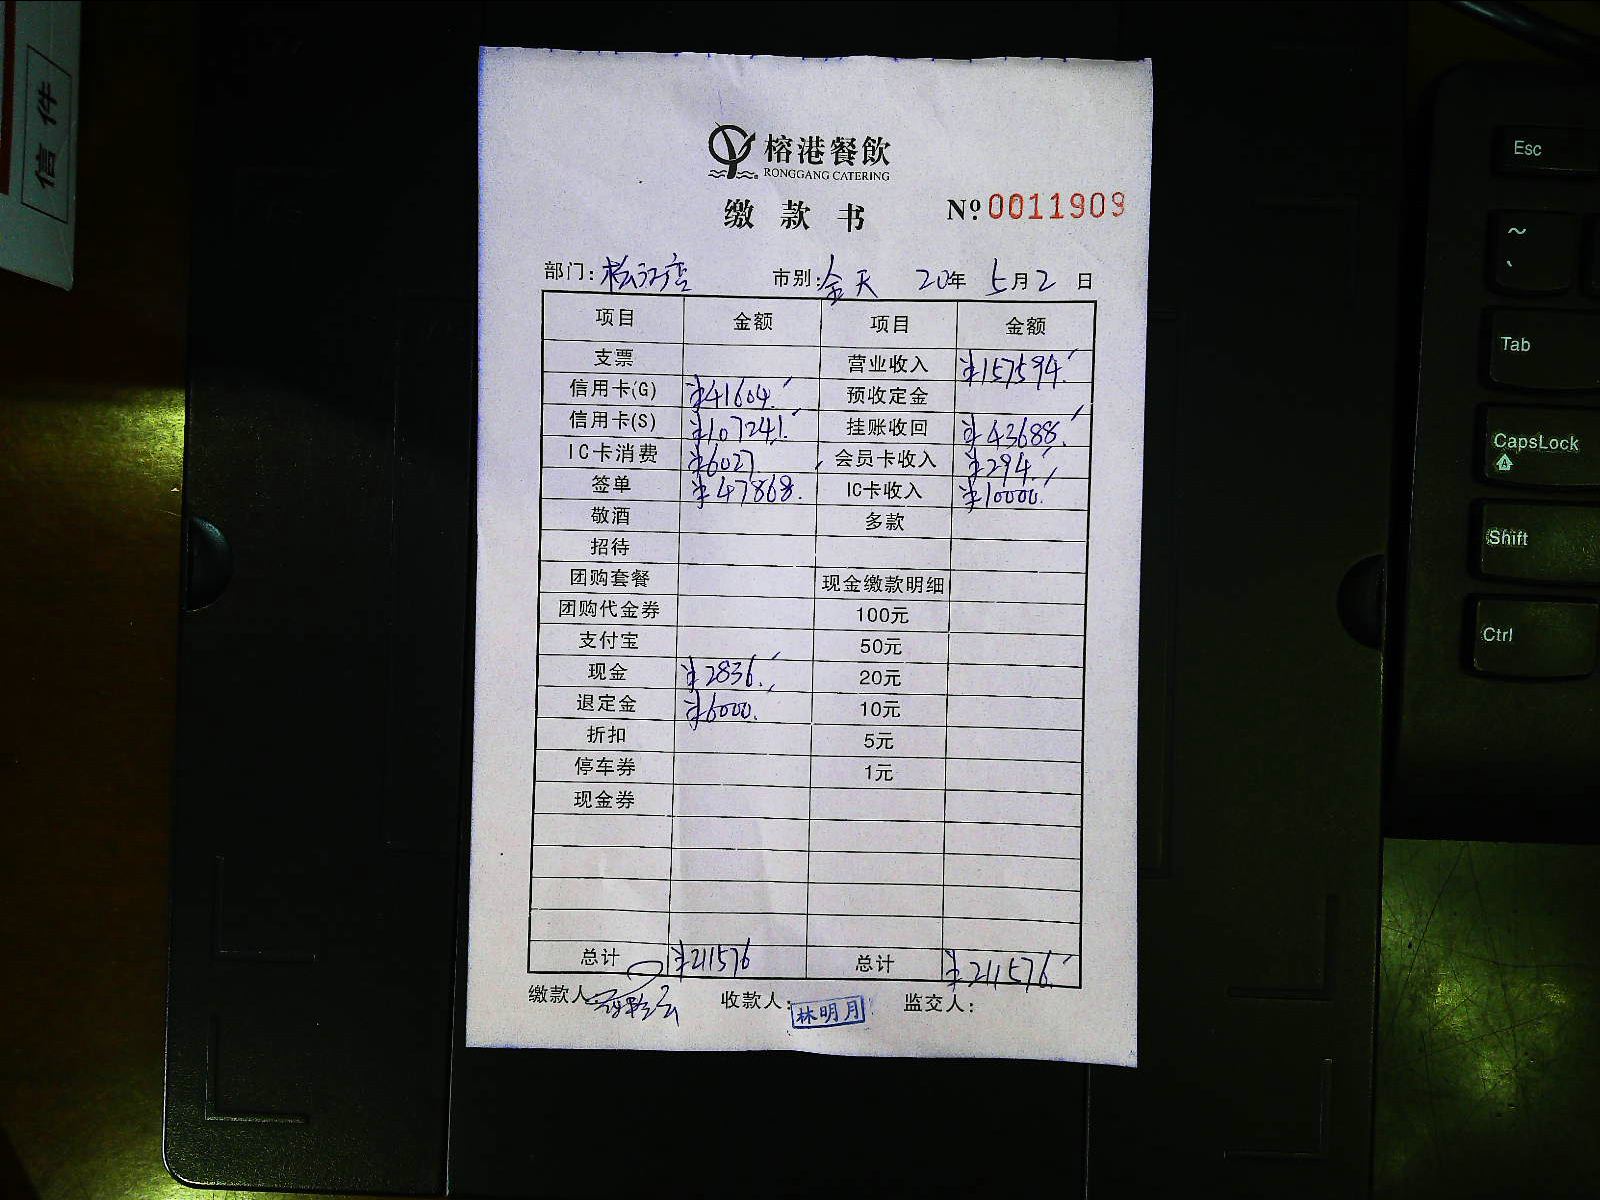 信件
榕港餐飲
RONGGANG CATERING
缴款书 Nº 0011909
部门: 松江店 市别: 全天 20年 5月2日
项目 金额 项目 金额
支票 营业收入 ¥157594.
信用卡(G) ¥41604. 预收定金
信用卡(S) ¥107241. 挂账收回 ¥43688.
IC卡消费 ¥6027. 会员卡收入 ¥294.
签单 ¥47868. IC卡收入 ¥10000.
敬酒 多款
招待
团购套餐 现金缴款明细
团购代金券 100元
支付宝 50元
现金 ¥2836. 20元
退定金 ¥6000. 10元
折扣 5元
停车券 1元
现金券
总计 ¥211576 总计 ¥211576.
缴款人: 收款人: 林明月 监交人:
Esc
~
、
Tab
CapsLock
Shift
Ctrl